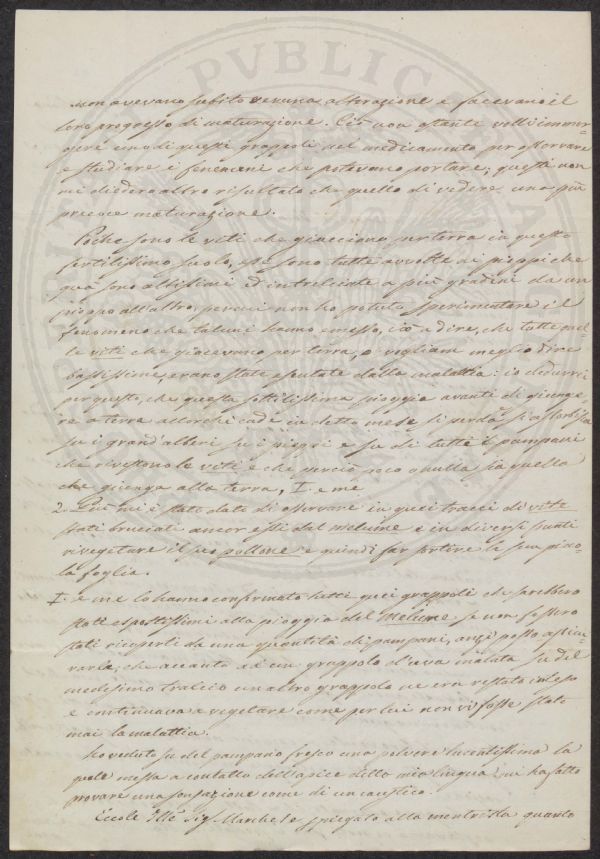 non avevano subito veruna alterazione e facevano il
loro progresso di maturazione. Ciò non ostante volli immer-
gere cinq di questi grappoli nel medicamento per osservare
e studiare i fenomeni che potevano portare; questi non
mi diedero altro risultato che quello di vedere una più
precoce maturazione.
Poche sono le viti che giacciono per terra in questo
fertilissimo suolo, esse sono tutte avvolte ai pioppi che
qua sono altissimi ed intrecciate a più gradini da un
pioppo all'altro, perciò non ho potuto sperimentare il
fenomeno che taluni hanno emesso, cioè a dire, che tutte quel-
le viti che giacevano per terra, o vogliam meglio dire
bassissime, erano state esentate dalla malattia: io dedurrei
per questo, che questa sottilissima pioggia avanti di giunge-
re a terra allorchè cade in detto mese si perda, si assorbisca
su i grand'alberi su i pioppi e su di tutti i pampani
che rivestono le viti e che perciò poco o nulla sia quella
che giunga alla terra, I. e me
2. Più mi è stato dato di osservare in quei tracci di vite
stati bruciati ancor essi dal melume e in diversi punti
rivegetare il suo pollone e quindi far sortire la sua picco-
la foglia.
I. e me lo hanno confirmato tutti quei grappoli che sarebbero
stati espostissimi alla pioggia del melume, se non fossero
stati ricoperti da una quantità di pampani, anzi posso assicu-
rarle, che accanto ad un grappolo d'uva malata su del
medesimo tralcio un altro grappolo ve era restato illeso
e continuava a vegetare come per lui non vi fosse stato
mai la malattia.
ho veduto su del pampano fresco una polvere lucentissima la
quale messa a contatto dell'apice della mia lingua, mi ha fatto
provare una sensazione come di un caustico.
Eccole Illē Sig. Marchese spiegato alla mentristla quanto